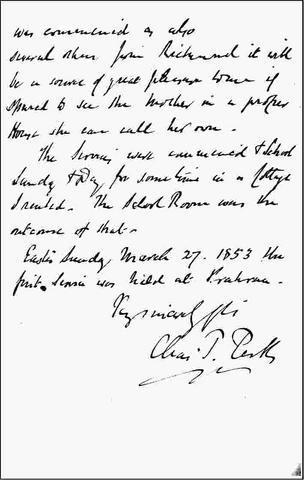 was commenced as also
several others from Richmond it will
be a source of great pleasure to me if
spared to see the Mother in a proper
House she can call her own.
The Services were commenced & School
Sunday & Day, for some time in a Cottage
I rented. The School Room was the
outcome of that.
Easter Sunday March 27. 1853 the
first Service was held at Prahran.
Very sincerely yrs
Chas T. Perks